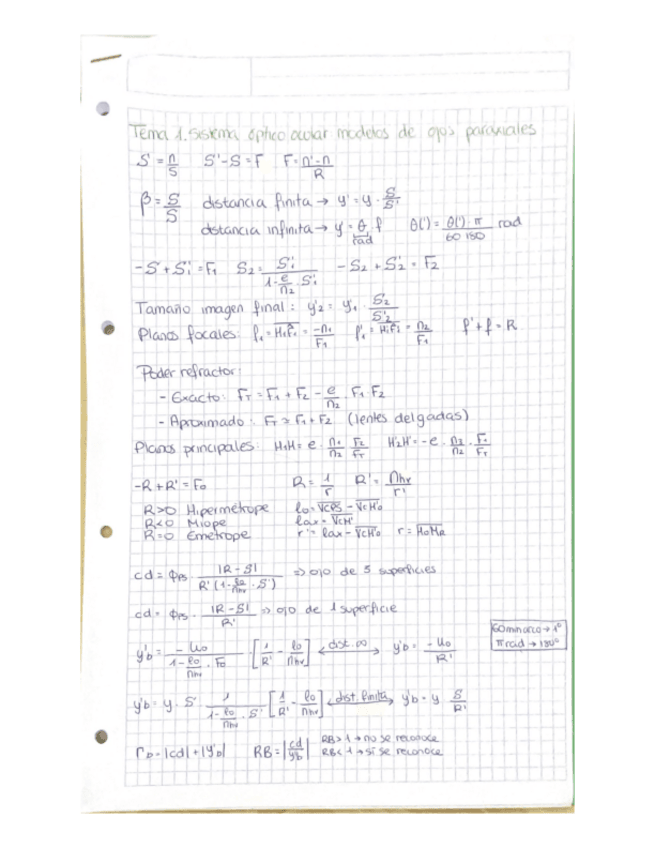 Tema 1. Sistema óptico ocular modelos de ojos paraxiales
S = n/S   S' - S = F   F = n' - n / R
β = S/S'   distancia finita → y' = y · S/S'
distancia infinita → y' = θ · f   θ(') = θ(') · π / 60 180 rad
rad
-S + S'₁ = F₁   S₂ = S'₁ / 1 - e/n₂ · S'₁   -S₂ + S'₂ = F₂
Tamaño imagen final: y'₂ = y'₁ · S₂/S'₂
Planos focales: f₁ = H₁F₁ = -n₁/F₁   f'₁ = H₁F'₁ = n₂/F₁   f' + f = R
Poder refractor:
- Exacto: F_T = F₁ + F₂ - e/n₂ · F₁ · F₂
- Aproximado: F_T ≃ F₁ + F₂ (lentes delgadas)
Planos principales: H₁H = e · n₁/n₂ · F₂/F_T   H'₂H' = -e · n₃/n₂ · F₁/F_T
-R + R' = F₀   R = 1/r   R' = n_hv/r'
R>0 Hipermétrope   l₀ = VCPS - VCH'₀
R<0 Miope   lax = VCM'
R=0 Emétrope   r' = lax - VCH'₀   r = H₀M_R
cd = Φ_PS · |R - S| / R' (1 - l₀/n_hv · S') ⇒ ojo de 3 superficies
cd = Φ_PS · |R - S| / R' ⇒ ojo de 1 superficie
y'b = -u₀ / 1 - l₀/n_hv · F₀ · [1/R' - l₀/n_hv] ← dist. ∞ → y'b = -u₀/R'
60 min arco → 1º
π rad → 180º
y'b = y · S · 1 / 1 - l₀/n_hv · S' [1/R' - l₀/n_hv] ← dist. finita → y'b = y · S/R'
r_b = |cd| + |y'b|   RB = |cd/y'b|   RB > 1 → no se reconoce
RB < 1 → sí se reconoce